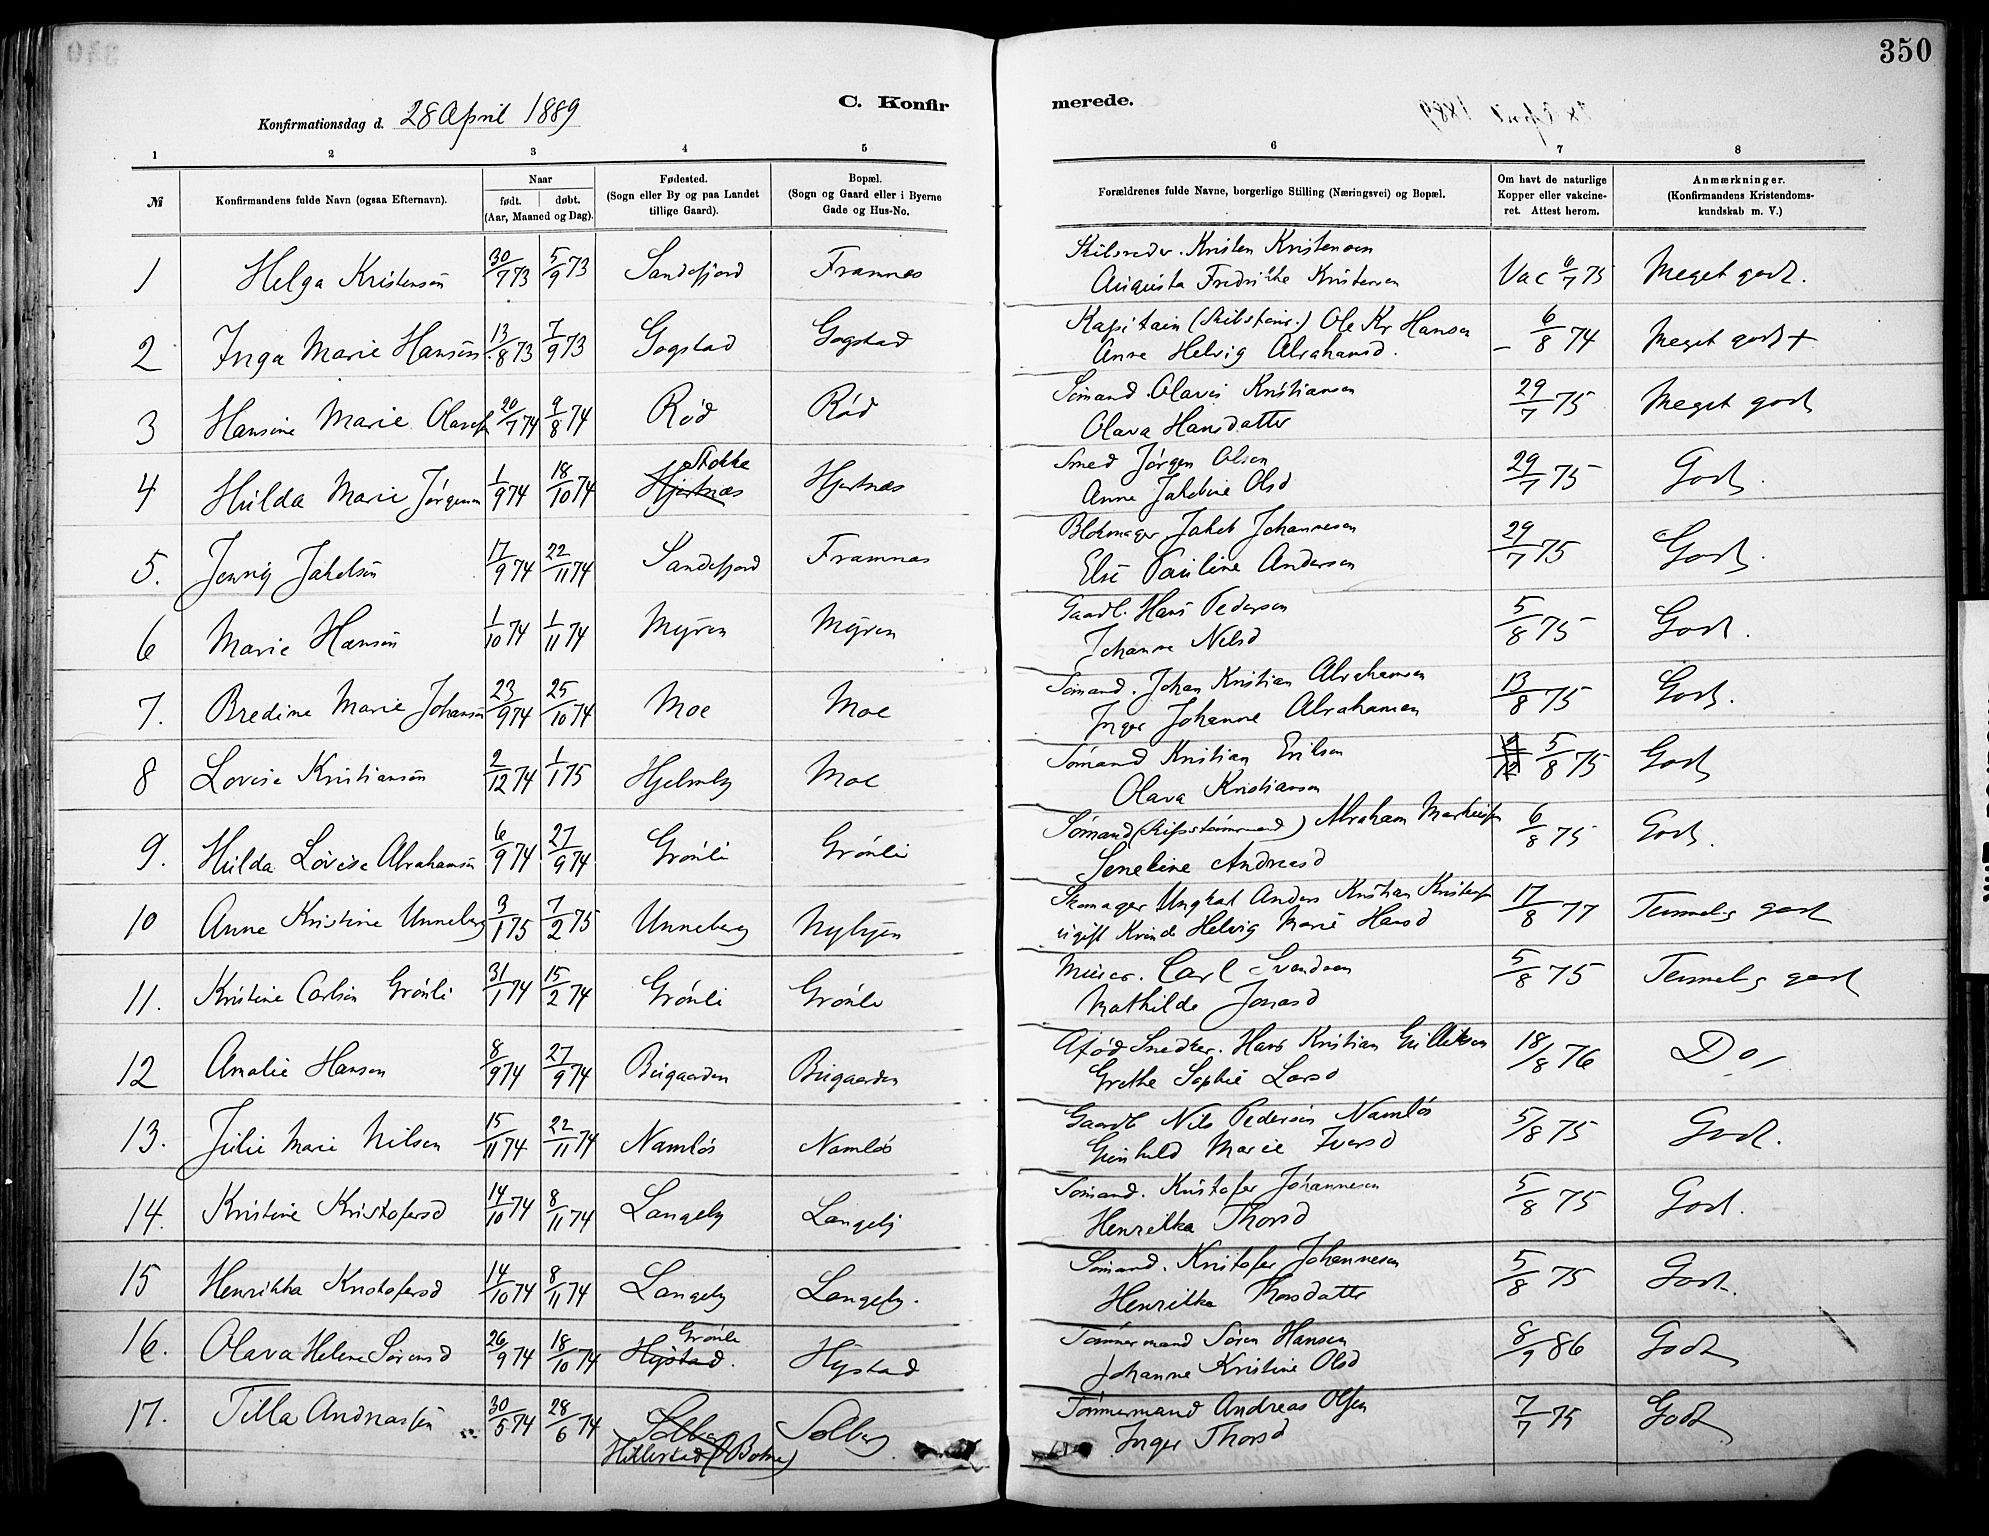 350
C. Konfir merede.
Konfirmationsdag d. 28 April 1889
1 2 3 4 5 6 7 8
№
Konfirmandens fulde Navn (ogsaa Efternavn).
Naar
født. døbt.
(Aar, Maaned og Dag).
Fødested.
(Sogn eller By og paa Landet
tillige Gaard).
Bopæl.
(Sogn og Gaard eller i Byerne
Gade og Hus-No.
Forældrenes fulde Navne, borgerlige Stilling (Næringsvei) og Bopæl.
Om havt de naturlige
Kopper eller vakcine-
ret. Attest herom.
Anmærkninger.
(Konfirmandens Kristendoms-
kundskab m. V.)
1 Helga Kristensen 30/7 73 5/9 73 Sandefjord Framnæs Skibsreder. Kristen Kristensen Vac 6/7 75 Meget godt.
Augusta Fredrikke Kristensen
2 Inga Marie Hansen 13/8 73 7/9 73 Gogstad Gogstad Kapitain (Skibstømr.) Ole Kr Hansen – 6/8 74 Meget godt +
Anne Helvig Abrahamsd.
3 Hansine Marie Olavesen 20/7 74 9/8 74 Rød Rød Sømand Olaves Kristiansen 29/7 75 Meget godt
Olava Hansdatter
4 Hulda Marie Jørgensen 1/9 74 18/10 74 Stokke Hjertnæs Hjertnæs Smed Jørgen Olsen 29/7 75 Godt.
Anne Jakobine Olsd
5. Jenny Jakobsen 17/9 74 22/11 74 Sandefjord Framnæs Blokmager Jakob Johannesen 29/7 75 Godt.
Else Pauline Andersen
6 Marie Hansen 1/10 74 1/11 74 Myren Myren Gaardb. Hans Pedersen 5/8 75 Godt.
Johanne Nilsd
7. Bredine Marie Johansen 23/9 74 25/10 74 Moe Moe Sømand. Johan Kristian Abrahamsen 13/8 75 Godt.
Inger Johanne Abrahamsen
8 Lovise Kristiansen 2/12 74 1/1 75 Hjelmby Moe Sømand Kristian Eriksen 5/8 75 Godt
Olava Kristiansen
9. Hulda Lovise Abrahamsen 6/9 74 27/9 74 Grønli Grønli Sømand (Skipstømmermand) Abraham 6/8 75 Godt.
Andreasd
10 Anne Kristine Unneberg 3/1 75 7/2 75 Unneberg Nybyen Skomager Ungkarl Anders Kristian Kristensen 17/8 77 Temmelig godt
ugift Kvinde Helvig Marie Hansd
11. Kristine Carlsen Grønli 31/1 74 15/2 74 Grønli Grønli Murer. Carl Svendsen 5/8 75 Temmelig godt
Mathilde Jonasd
12 Amalie Hansen 8/9 74 27/9 74 Bugaarden Bugaarden Afdød Snedker. Hans Kristian Gulliksen 18/8 76 Do,
Grethe Sophie Larsd
13. Julie Marie Nilsen 15/11 74 22/11 74 Namløs Namløs Gaardb Nils Pedersen Namløs 5/8 75 Godt.
Gunhild Marie Iversd
14. Kristine Kristofersd 14/10 74 8/11 74 Langeby Langeby Sømand. Kristofer Johannesen 5/8 75 Godt.
Henrikka Thorsd
15 Henrikka Kristofersd 14/10 74 8/11 74 Langeby Langeby. Sømand. Kristofer Johannesen 5/8 75 Godt.
Henrikka Thorsdatter
16. Olava Helene Sørensd 26/9 74 18/10 74 Grønli Hystad. Hystad Tømmermand Søren Hansen 8/9 86 Godt
Johanne Kristine Olsd
17. Tilla Andreassen 30/5 74 28/6 74 Solberg Solberg Tømmermand Andreas Olsen 7/7 75 Godt
Hillestad (i Botne) Inger Thorsd